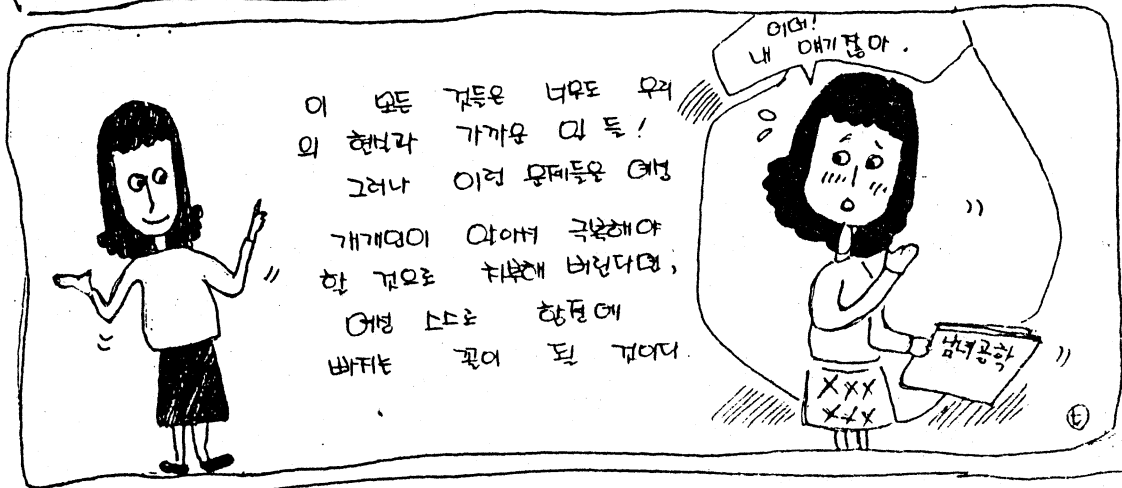 이 모든 것들은 너무도 우리
의 현실과 가까운 일 들!
그러나 이런 문제들은 여성
개개인이 알아서 극복해야
할 것으로 치부해 버린다면,
여성 스스로 함정에
빠지는 꼴이 될 것이다.
어머!
내 얘기잖아.
남녀공학